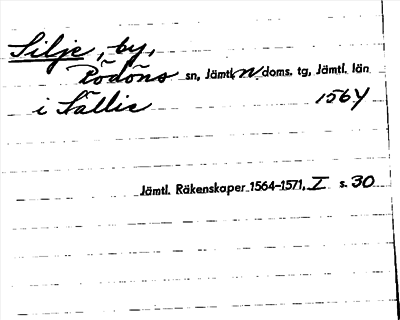 Silje, by,
Rödöns sn, Jämtl. N. doms. tg, Jämtl. län
i Sällie 1564
Jämtl. Räkenskaper 1564–1571, I s. 30